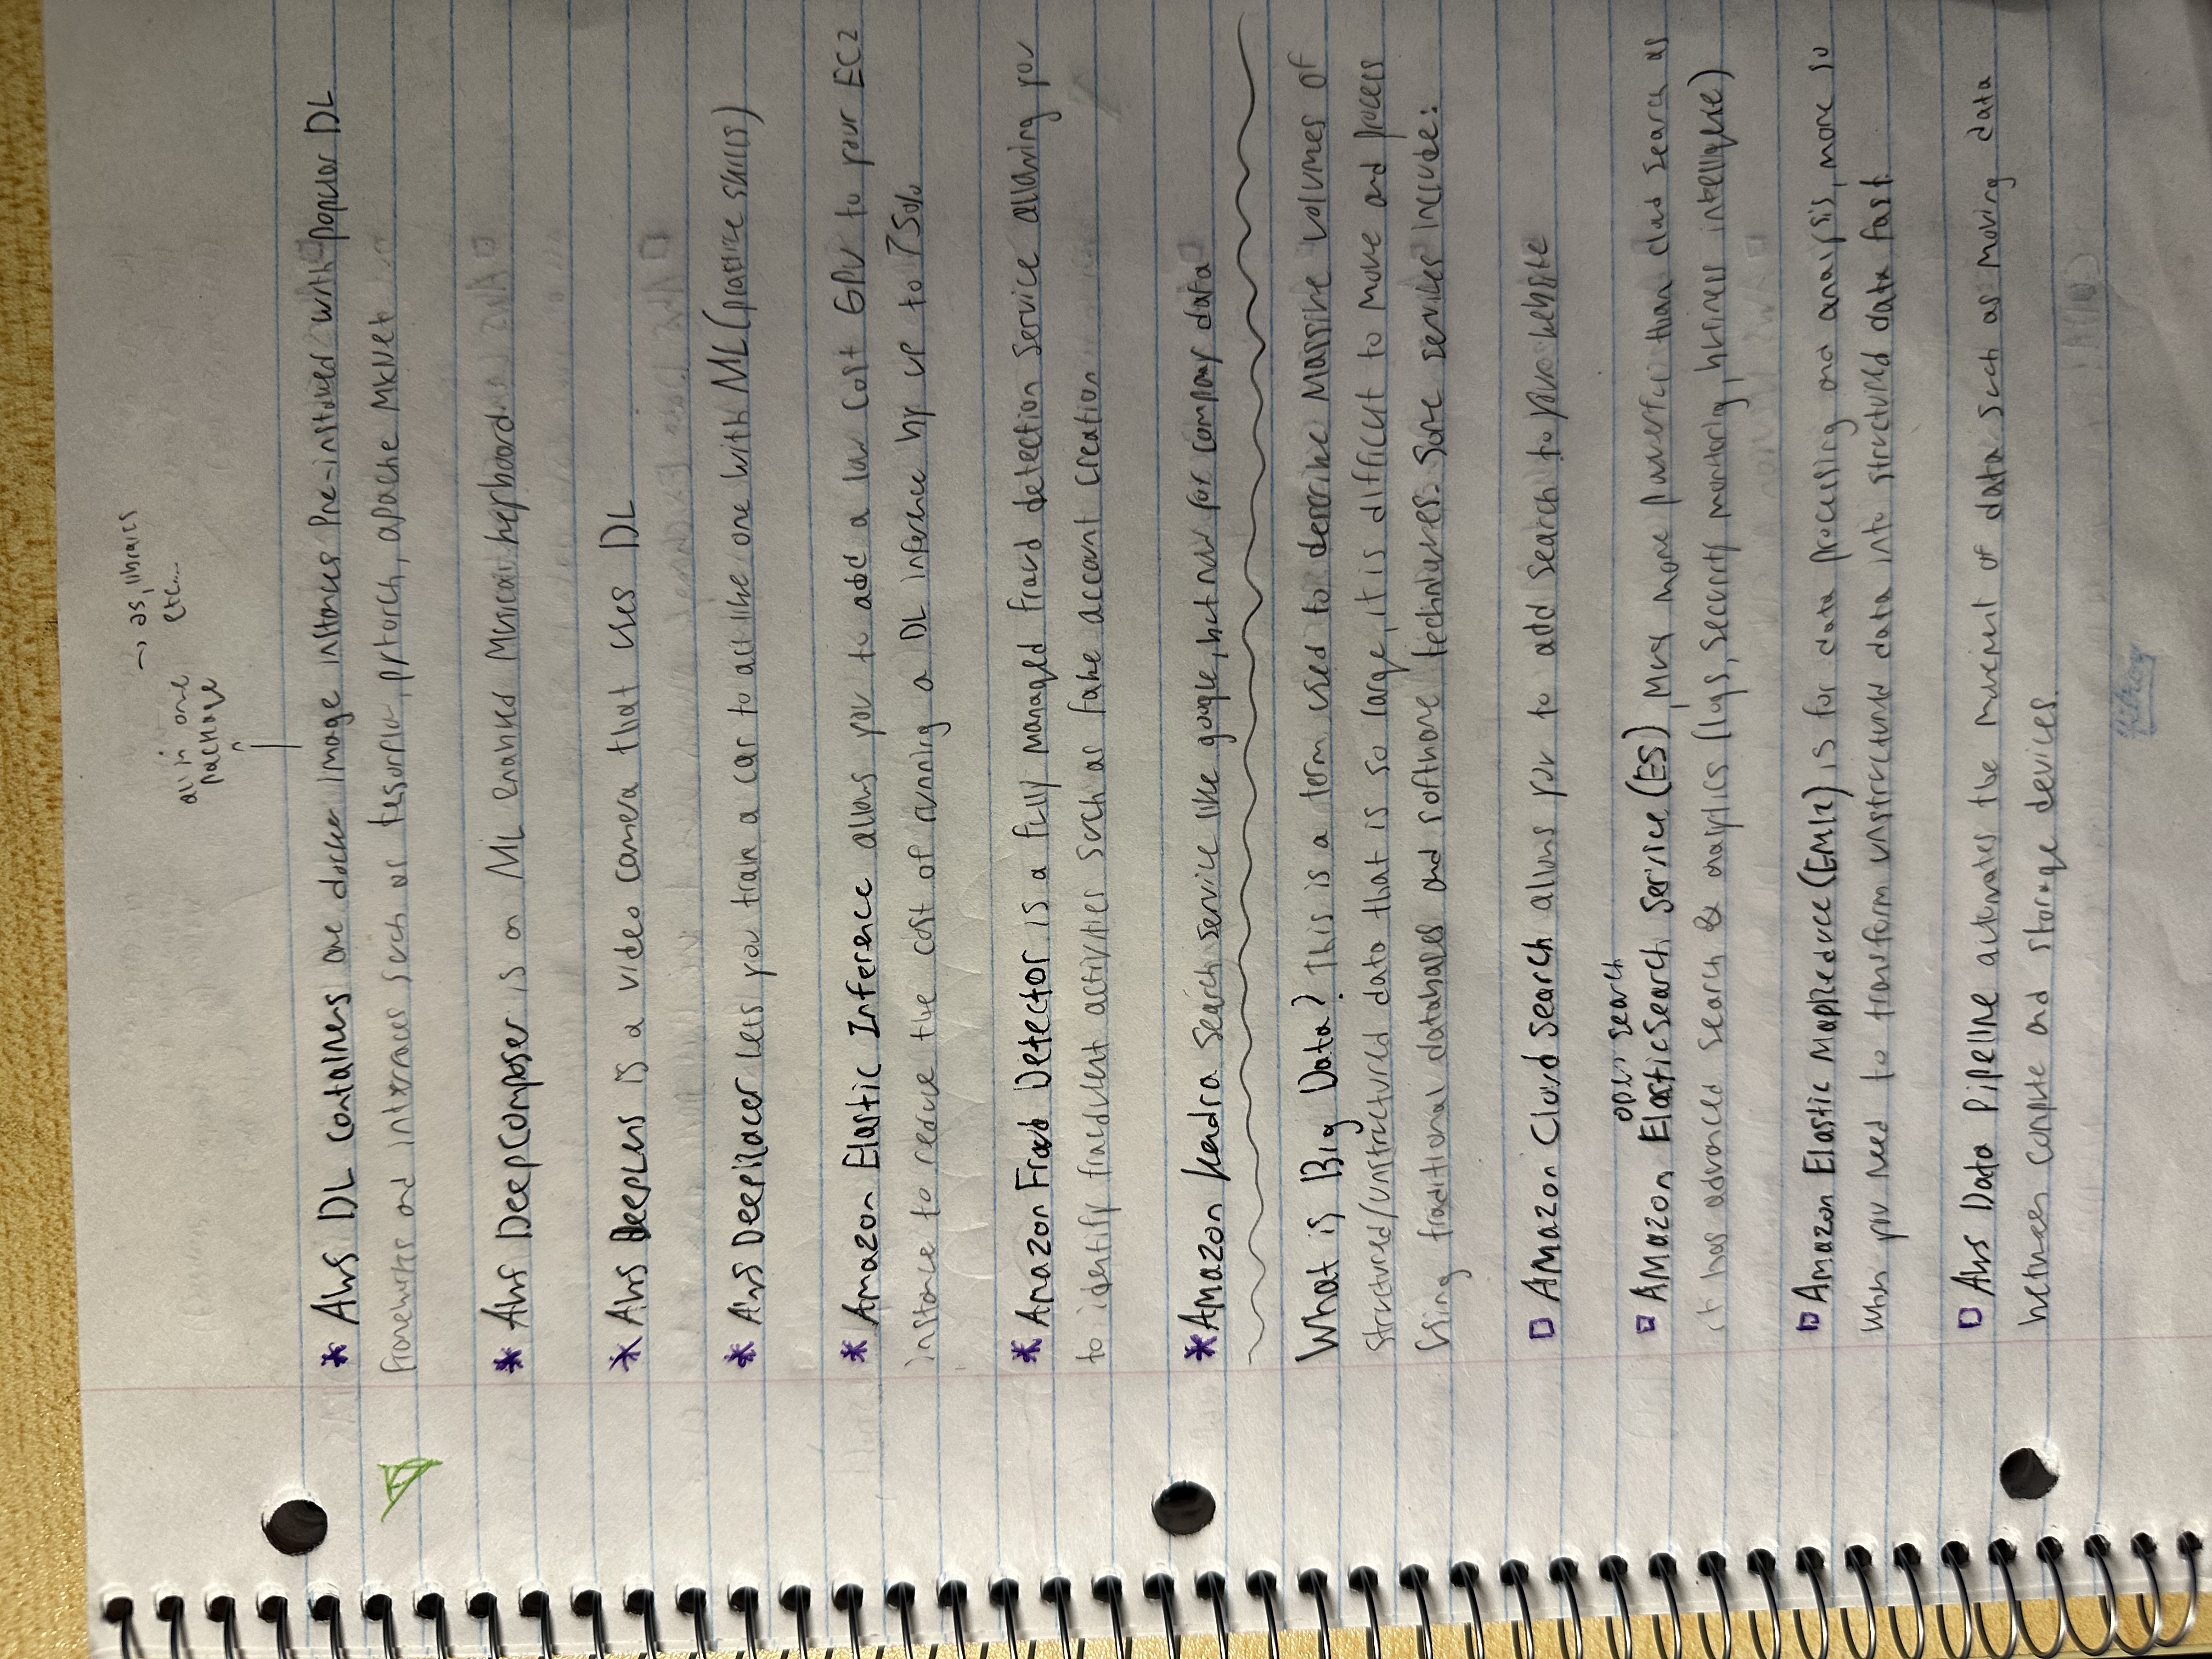 → os, libraries
etc...
all in one
package
* AWS DL Containers are docker image instances Pre-installed with popular DL
frameworks and interfaces such as tesorflow, pytorch, apache MXNet
* AWS DeepComposer is a ML enabled Musical keyboard.
* AWS DeepLens is a video camera that uses DL
* AWS DeepRacer lets you train a car to act like one with ML (practice skills)
* Amazon Elastic Inference allows you to add a low cost GPU to your EC2
instance to reduce the cost of running a DL inference by up to 75%
* Amazon Fraud Detector is a fully managed fraud detection service allowing you
to identify fraudulent activities such as fake account creation
* Amazon Kendra search service like google, but now for company data
What is Big Data? This is a term used to describe massive volumes of
structured/unstructured data that is so large, it is difficult to move and process
using traditional databases and software techniques. Some services include:
□ Amazon Cloud Search allows you to add search to your website
open search
□ Amazon Elasticsearch Service (ES), more powerful than cloud search as
it has advanced search & analytics (logs, security monitoring, business intelligence)
□ Amazon Elastic MapReduce (EMR) is for data processing and analysis, more so
when you need to transform unstructured data into structured data fast
□ AWS Data Pipeline automates the movement of data such as moving data
between compute and storage devices.